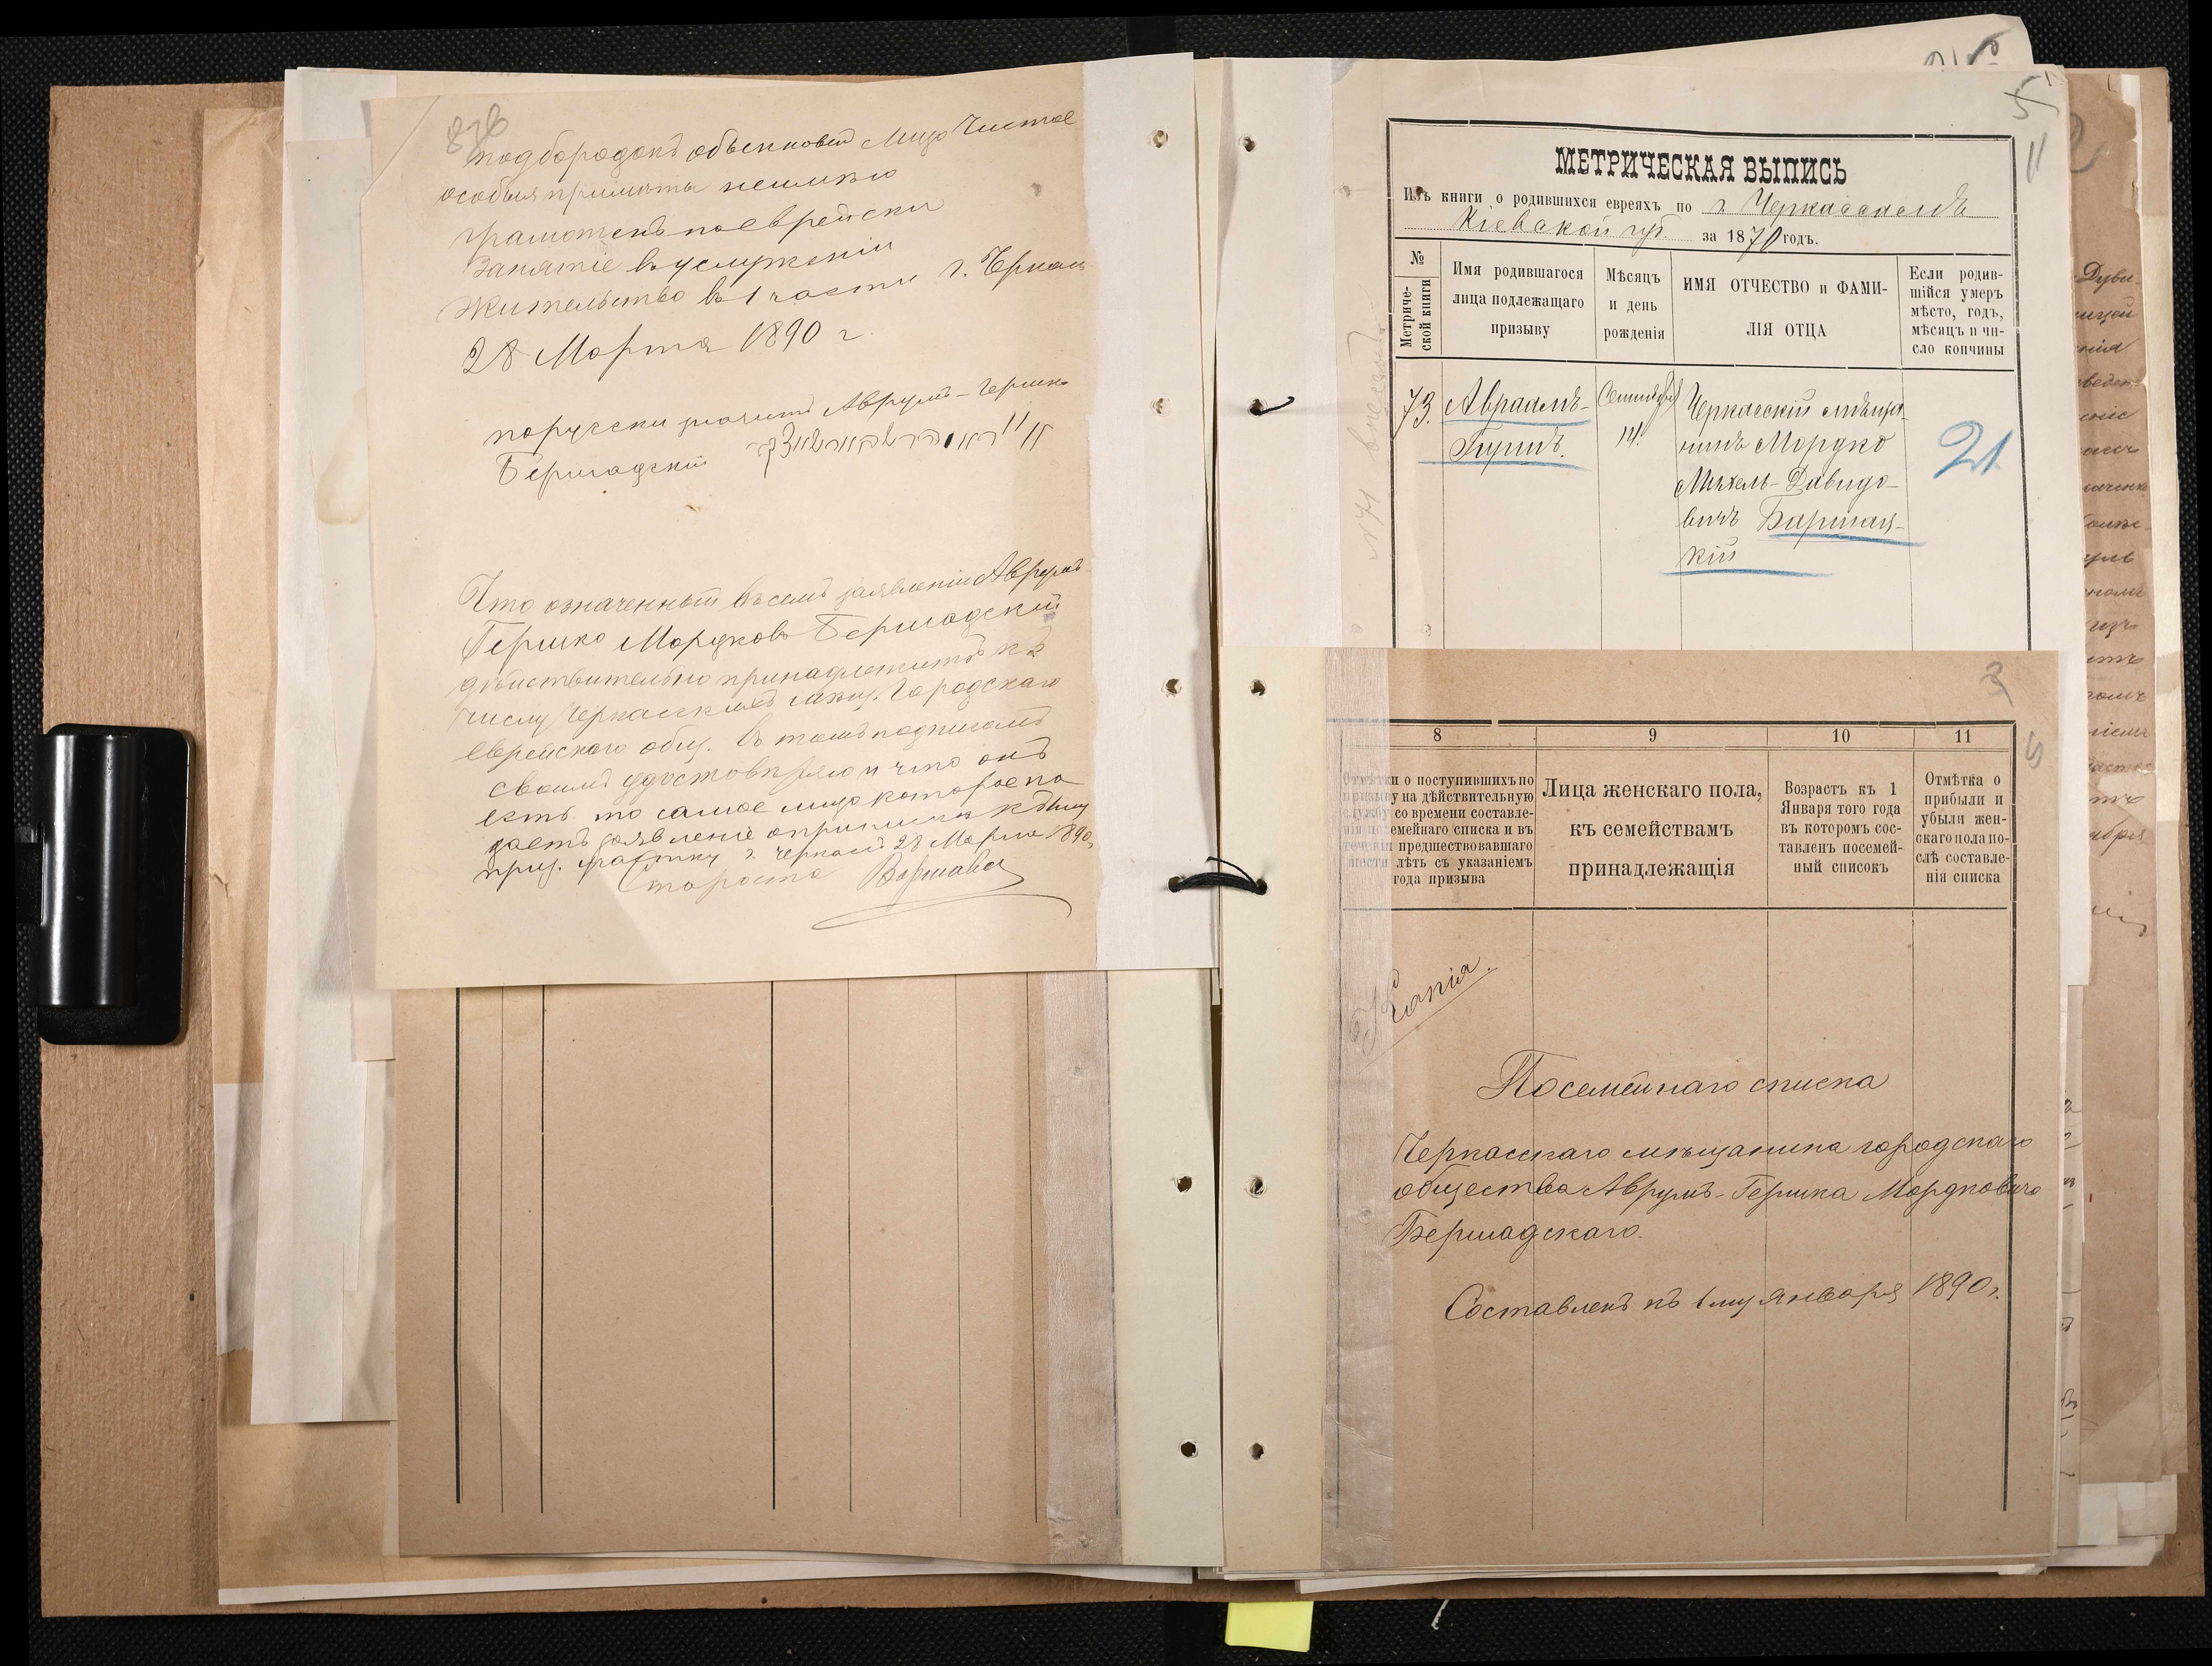 подбородокъ обыкновен Лицо Чистое
особыя примѣты неимѣю
грамотенъ поеврейски
Занятіе въ услуженіи
Жительство въ 1 части г. Черкас
28 Марта 1890 г
порусски значитъ Аврумъ-Гершко
Бершадскій
Что означенный въ семъ заявленіи Аврумъ
Гершко Мордковъ Бершадскій
дѣйствительно принадлежитъ къ
числу Черкасскихъ мѣщ. Городскаго
еврейскаго общ. въ томъ подписомъ
своимъ удостовѣряю и что онъ
есть то самое лицо которое по
даетъ заявленіе о припискѣ къ
приз. участку г. Черкасъ 28 Марта 1890г
Староста Варшавс
5
11
МЕТРИЧЕСКАЯ ВЫПИСЬ
Изъ книги о родившихся евреяхъ по г. Черкассамъ
Кіевской губ. за 1870 годъ.
№ Метриче-ской книги
Имя родившагося лица подлежащаго призыву
Мѣсяцъ и день рожденія
ИМЯ ОТЧЕСТВО и ФАМИ-ЛІЯ ОТЦА
Если родив-шійся умеръ мѣсто, годъ, мѣсяцъ и чи-сло кончины
73. Авраамъ- Сентября Черкасскій мѣща-
Гершъ. 14. нинъ Мордко
Михель-Давидо-
вичъ Баршац-
кій
21
3
5
8 9 10 11
Отмѣтки о поступившихъ по призыву на дѣйствительную службу со времени составле-нія посемейнаго списка и въ теченіи предшествовавшаго шести лѣтъ съ указаніемъ года призыва
Лица женскаго пола, къ семействамъ принадлежащія
Возрастъ къ 1 Января того года въ которомъ сос-тавленъ посемей-ный списокъ
Отмѣтка о прибыли и убыли жен-скаго пола по-слѣ составле-нія списка
Копія.
Посемейнаго списка
Черкасскаго мѣщанина городскаго
общества Аврумъ-Гершка Мордковича
Бершадскаго.
Составленъ къ 1му января 1890г.